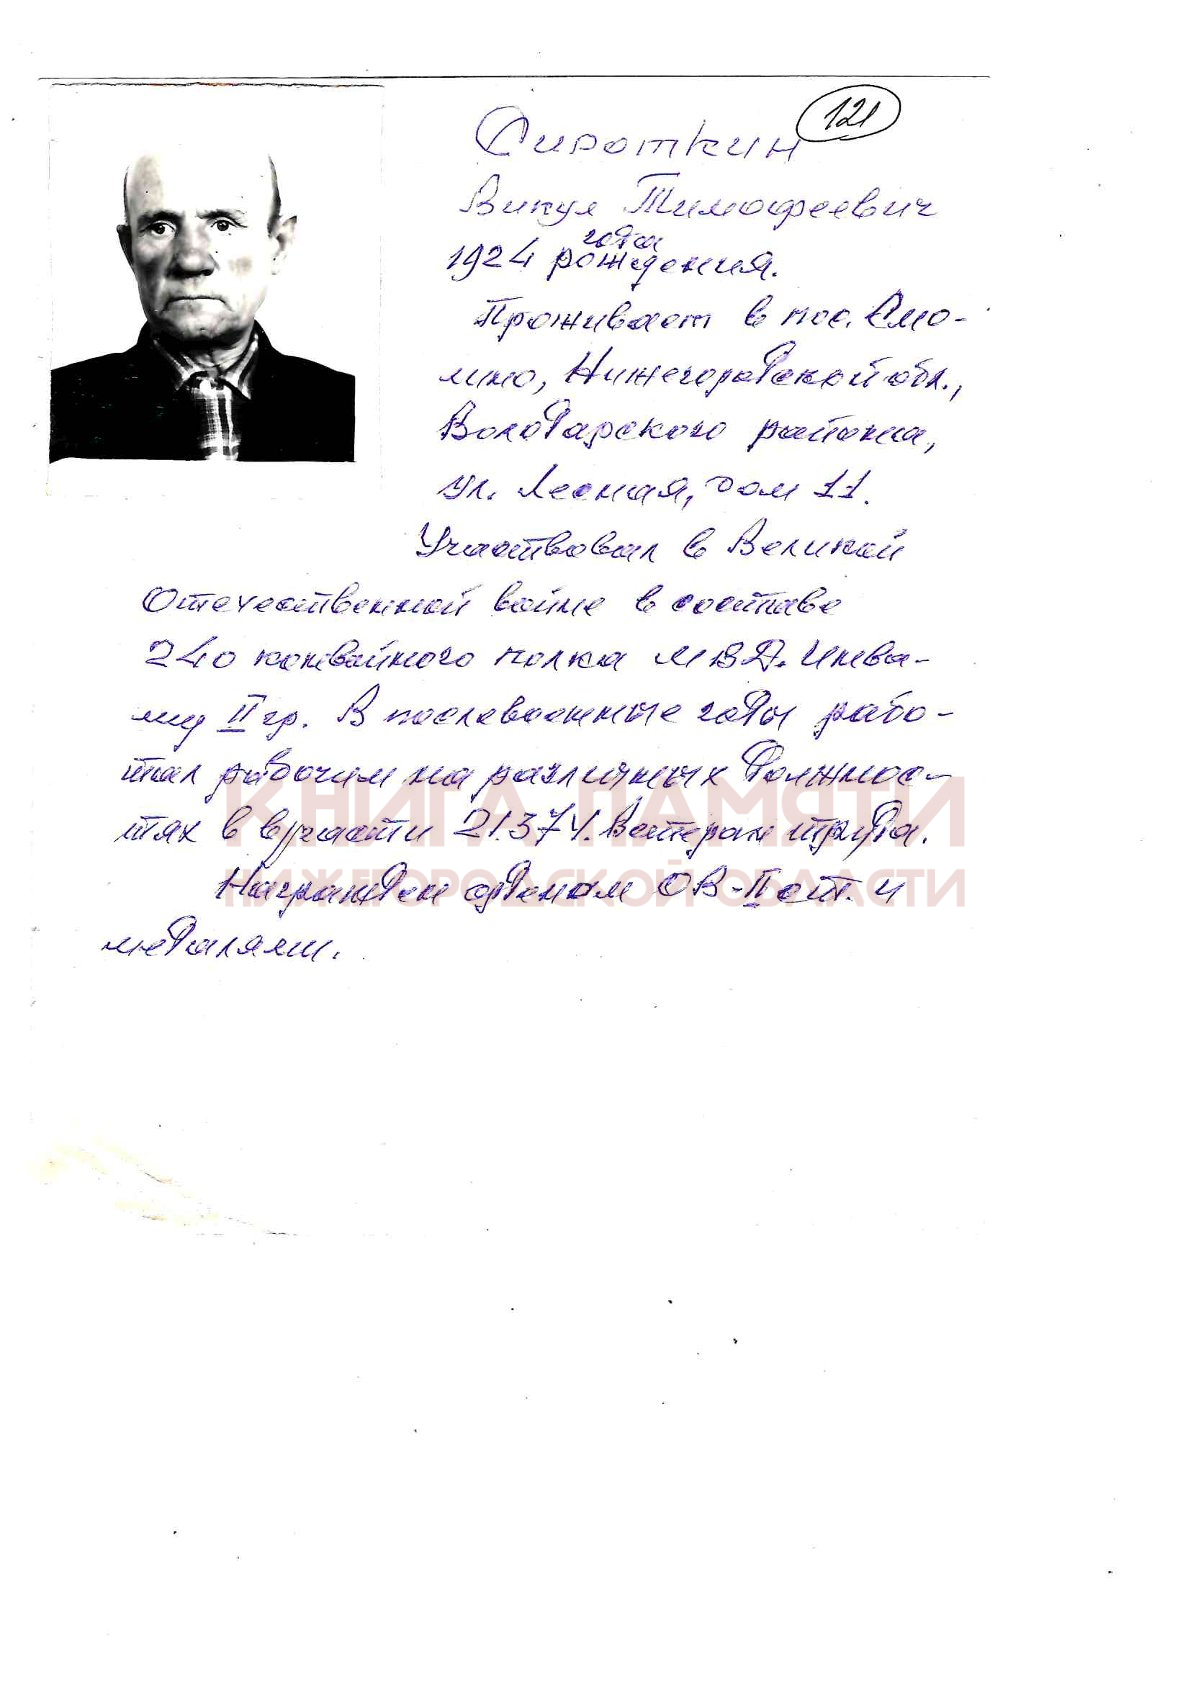 121
Сироткин
Викул Тимофеевич
года
1924 рождения.
Проживает в пос. Смо-
лино, Нижегородской обл.,
Володарского района,
ул. Лесная, дом 11.
Участвовал в Великой
Отечественной войне в составе
240 конвойного полка МВД. Инва-
лид II гр. В послевоенные годы рабо-
тал рабочим на различных должнос-
тях в в/части 21374. Ветеран труда.
КНИГА ПАМЯТИ
Награжден орденом ОВ-II ст. и
НИЖЕГОРОДСКОЙ ОБЛАСТИ
медалями.